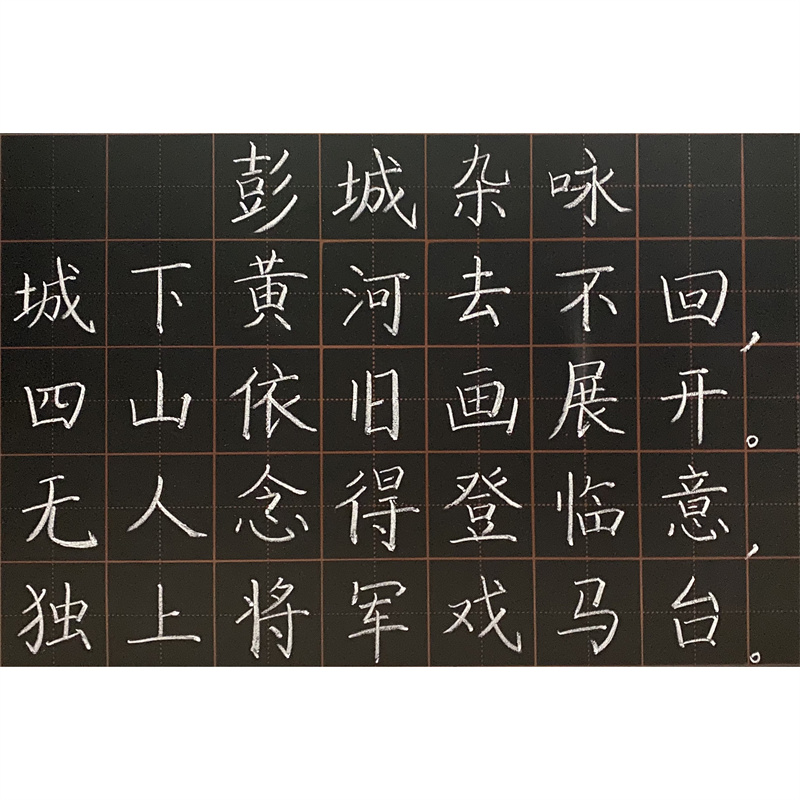 彭城杂咏
城下黄河去不回，
四山依旧画展开。
无人念得登临意，
独上将军戏马台。